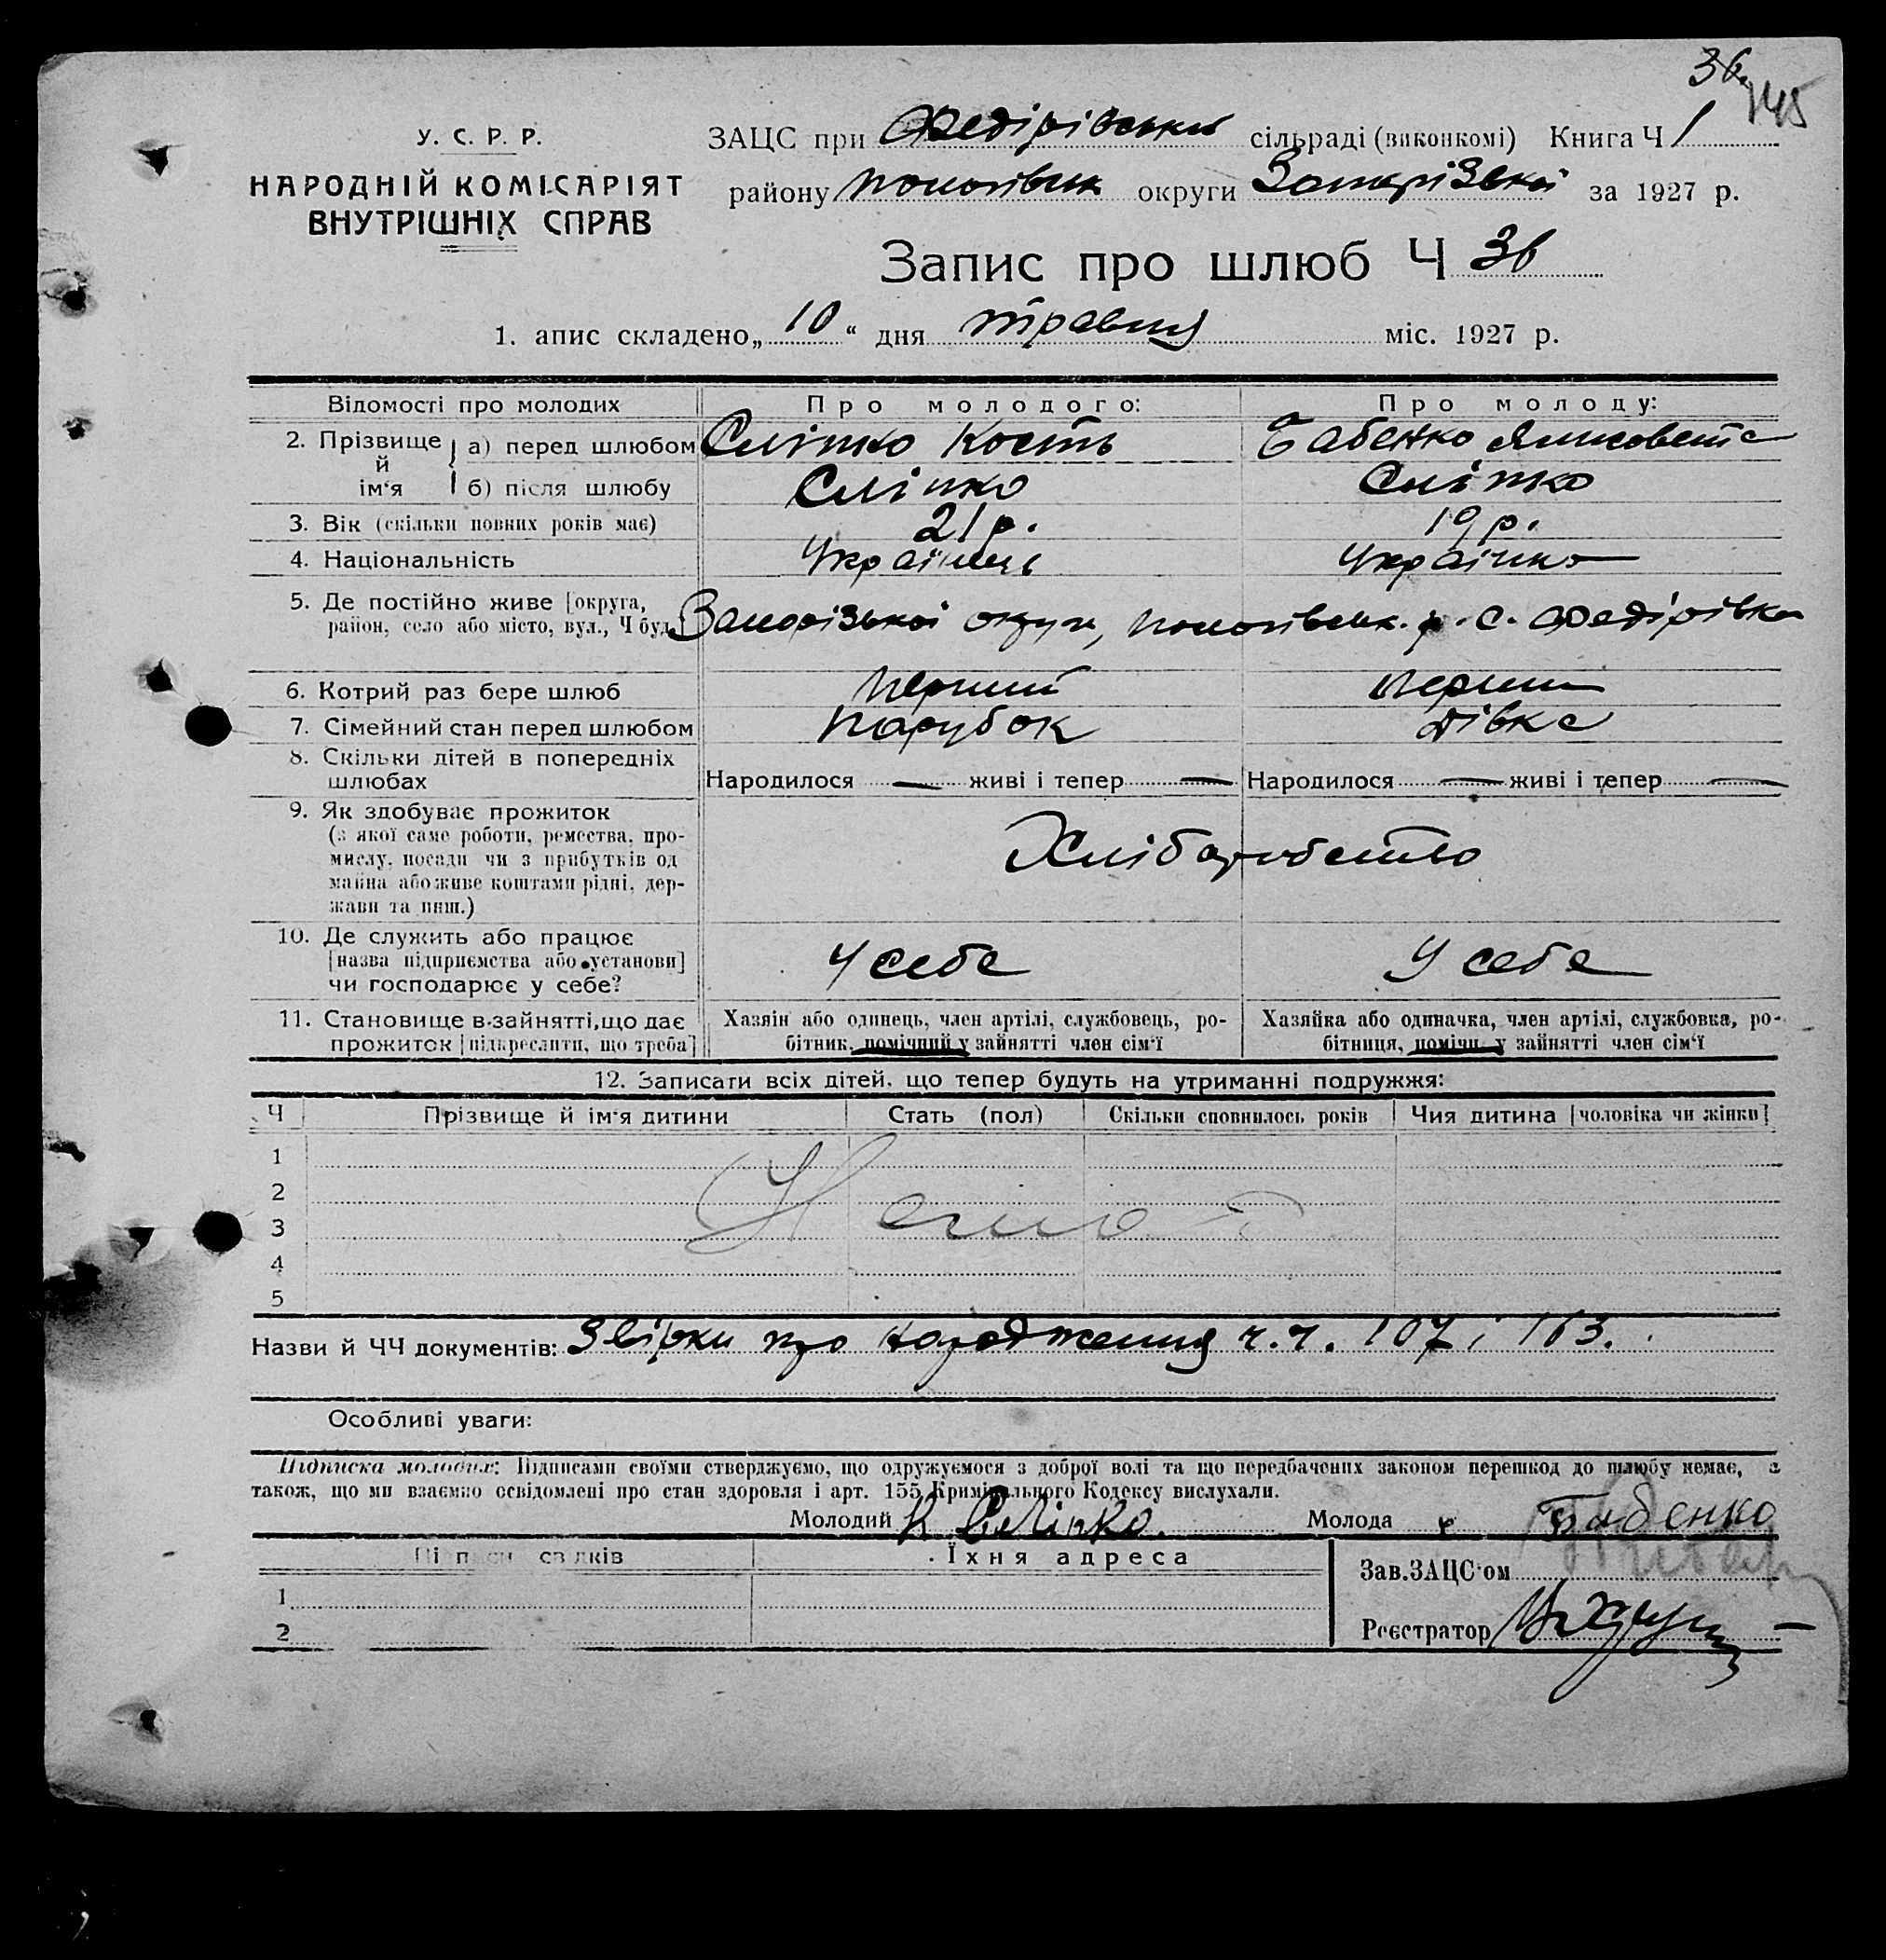 36
145
У. С. Р. Р.
НАРОДНІЙ КОМІСАРІЯТ
ВНУТРІШНІХ СПРАВ
ЗАЦС при Федірівській сільраді (виконкомі) Книга Ч 1
району Пологівськ округи Запорізької за 1927 р.
Запис про шлюб Ч 36
1. апис складено „ 10 “ дня травня міс. 1927 р.
Відомості про молодих Про молодого: Про молоду:
2. Прізвище й ім‘я а) перед шлюбом Сліпко Кость Бабенко Ялисовета
б) після шлюбу Сліпко Сліпко
3. Вік (скільки повних років має) 21 р. 19 р.
4. Національність Українець Українка
5. Де постійно живе [округа,
район, село або місто, вул., Ч буд.] Запорізької округи, Пологівськ. р. с. Федірівка
6. Котрий раз бере шлюб Перший Перший
7. Сімейний стан перед шлюбом Парубок Дівка
8. Скільки дітей в попередніх
шлюбах Народилося — живі і тепер — Народилося — живі і тепер —
9. Як здобуває прожиток
(з якої саме роботи, ремества, про-
мислу, посади чи з прибутків од
майна або живе коштами рідні, дер-
жави та инш.) Хліборобство
10. Де служить або працює
[назва підприємства або установи]
чи господарює у себе? У себе У себе
11. Становище в зайнятті, що дає
прожиток [підкреслити, що треба]
Хазяїн або одинець, член артілі, службовець, ро-
бітник, помічний у зайнятті член сім‘ї
Хазяйка або одиначка, член артілі, службовка, ро-
бітниця, помічн. у зайнятті член сім‘ї
12. Записати всіх дітей, що тепер будуть на утриманні подружжя:
Ч Прізвище й ім‘я дитини Стать (пол) Скільки сповнилось років Чия дитина [чоловіка чи жінки]
1
2
3
4
5
Назви й ЧЧ документів: Звірки про народження ч.ч. 107 і 163.
Особливі уваги:
Підписка молодих: Підписами своїми стверджуємо, що одружуємося з доброї волі та що передбачених законом перешкод до шлюбу немає, а
також, що ми взаємно освідомлені про стан здоровля і арт. 155 Кримінального Кодексу вислухали.
Молодий К Сліпко. Молода Бабенко
Підписи свідків Їхня адреса
1
2
Зав. ЗАЦС‘ом
Реєстратор